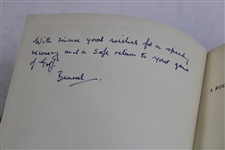 With sincere good wishes for a speedy
recovery and a safe return to your game
of Golf.
A BOU